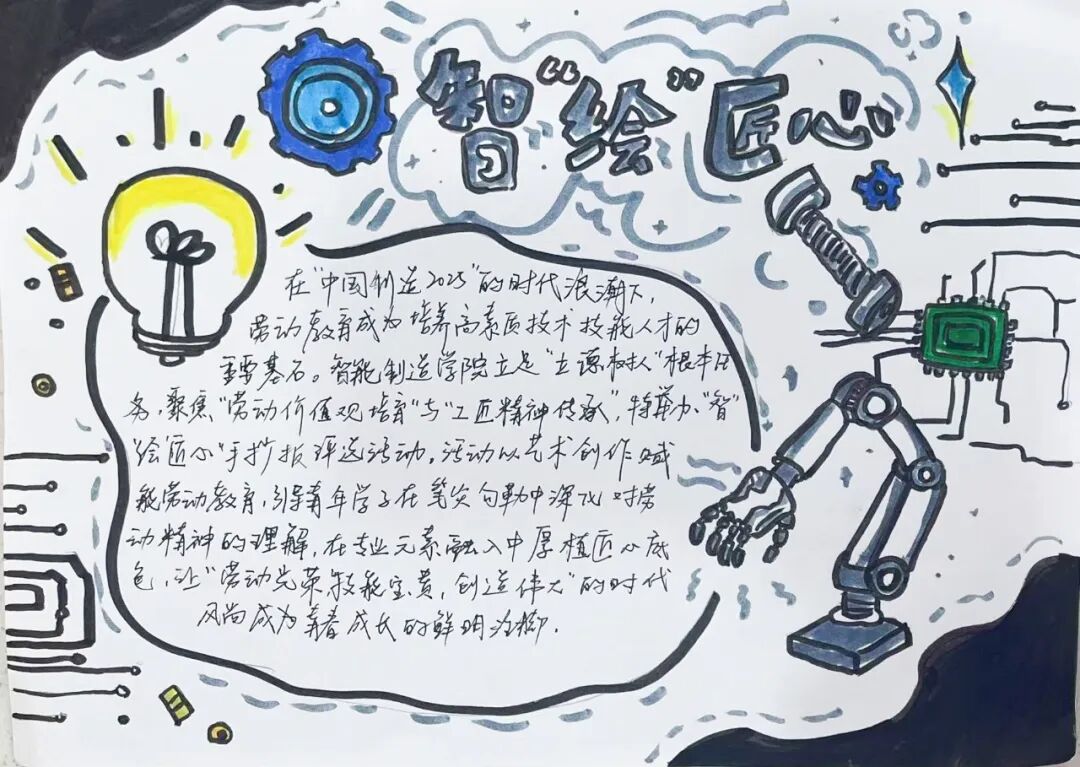 智“绘”匠心
在“中国制造2025”的时代浪潮下，
劳动教育成为培养高素质技术技能人才的
重要基石。智能制造学院立足“立德树人”根本任
务，聚焦“劳动价值观培育”与“工匠精神传承”，特举办“智”
“绘匠心”手抄报评选活动。活动以艺术创作赋
能劳动教育，引导青年学子在笔尖勾勒中深化对劳
动精神的理解，在专业元素融入中厚植匠心底
色，让“劳动光荣、技能宝贵，创造伟大”的时代
风尚成为青春成长的鲜明注脚.